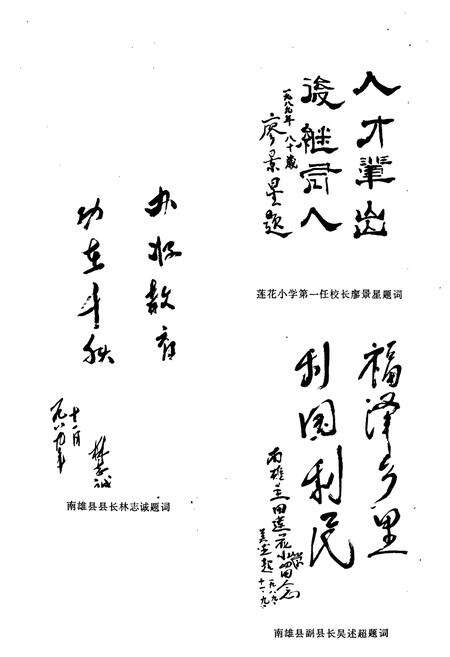 人才辈出
後继有人
一九八九年 八十歲
廖景星题
莲花小学第一任校长廖景星题词
办好教育
功在千秋
一九八九年
十一月
林志诚
南雄县县长林志诚题词
福泽乡里
利国利民
南雄兰田莲花小学留念
吴述超 一九八九
十一.九.
南雄县副县长吴述超题词